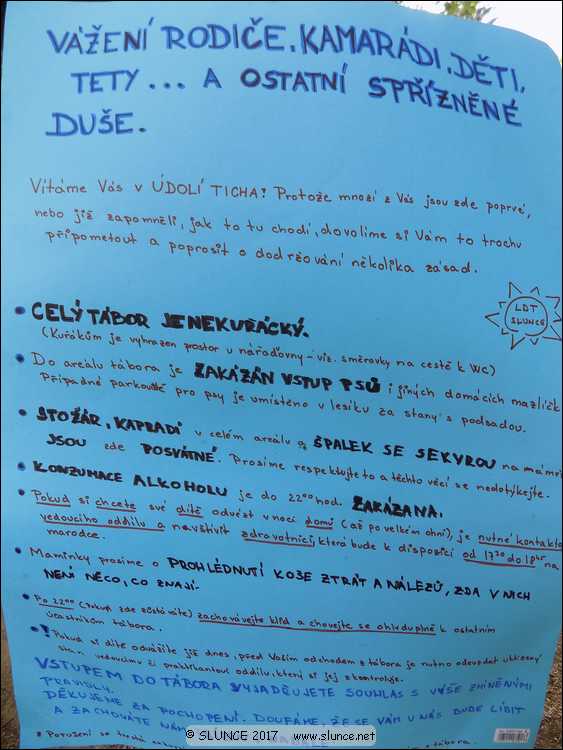 VÁŽENÍ RODIČE, KAMARÁDI, DĚTI,
TETY... A OSTATNÍ SPŘÍZNĚNÉ
DUŠE.
Vítáme Vás v ÚDOLÍ TICHA! Protože mnozí z Vás jsou zde poprvé,
nebo již zapomněli, jak to tu chodí, dovolíme si Vám to trochu
připomenout a poprosit o dodržování několika zásad.
LDT
SLUNCE
• CELÝ TÁBOR JE NEKUŘÁCKÝ.
(Kuřákům je vyhrazen prostor u nářaďovny - viz. směrovky na cestě k WC)
• Do areálu tábora je ZAKÁZÁN VSTUP PSŮ i jiných domácích mazlíčk
Případné parkoviště pro psy je umístěno v lesíku za stany s podsadou.
• STOŽÁR, KAPRADÍ v celém areálu a ŠPALEK SE SEKYROU na
JSOU zde POSVÁTNÉ. Prosíme respektujte to a těchto věcí se nedotýkejte.
• KONZUMACE ALKOHOLU je do 22 00 hod. ZAKÁZANA.
• Pokud si chcete své dítě odvézt v noci domů (až po velkém ohni), je nutné kontakto
vedoucího oddílu a navštívit zdravotnici, která bude k dispozici od 17 30 do 18 na
marodce.
• Maminky prosíme o PROHLÉDNUTÍ KOŠE ZTRÁT A NÁLEZŮ, ZDA V NICH
NENÍ NĚCO, CO ZNAJÍ.
• Po 22 00 (pokud zde zůstáváte) zachovávejte klid a chovejte se ohleduplně k ostatním
účastníkům tábora.
• ! Pokud si dítě odvážíte již dnes, před Vaším odchodem z tábora je nutno odevzdat uklizený
stan vedoucímu či praktikantovi oddílu, který si jej zkontroluje.
VSTUPEM DO TÁBORA VYJADŘUJETE SOUHLAS S VÝŠE ZMÍNĚNÝMI
PRAVIDLY.
DĚKUJEME ZA POCHOPENÍ. DOUFÁME, ŽE SE VÁM U NÁS BUDE LÍBIT
A ZACHOVÁTE NÁM
• Porušení
© SLUNCE 2017 www.slunce.net